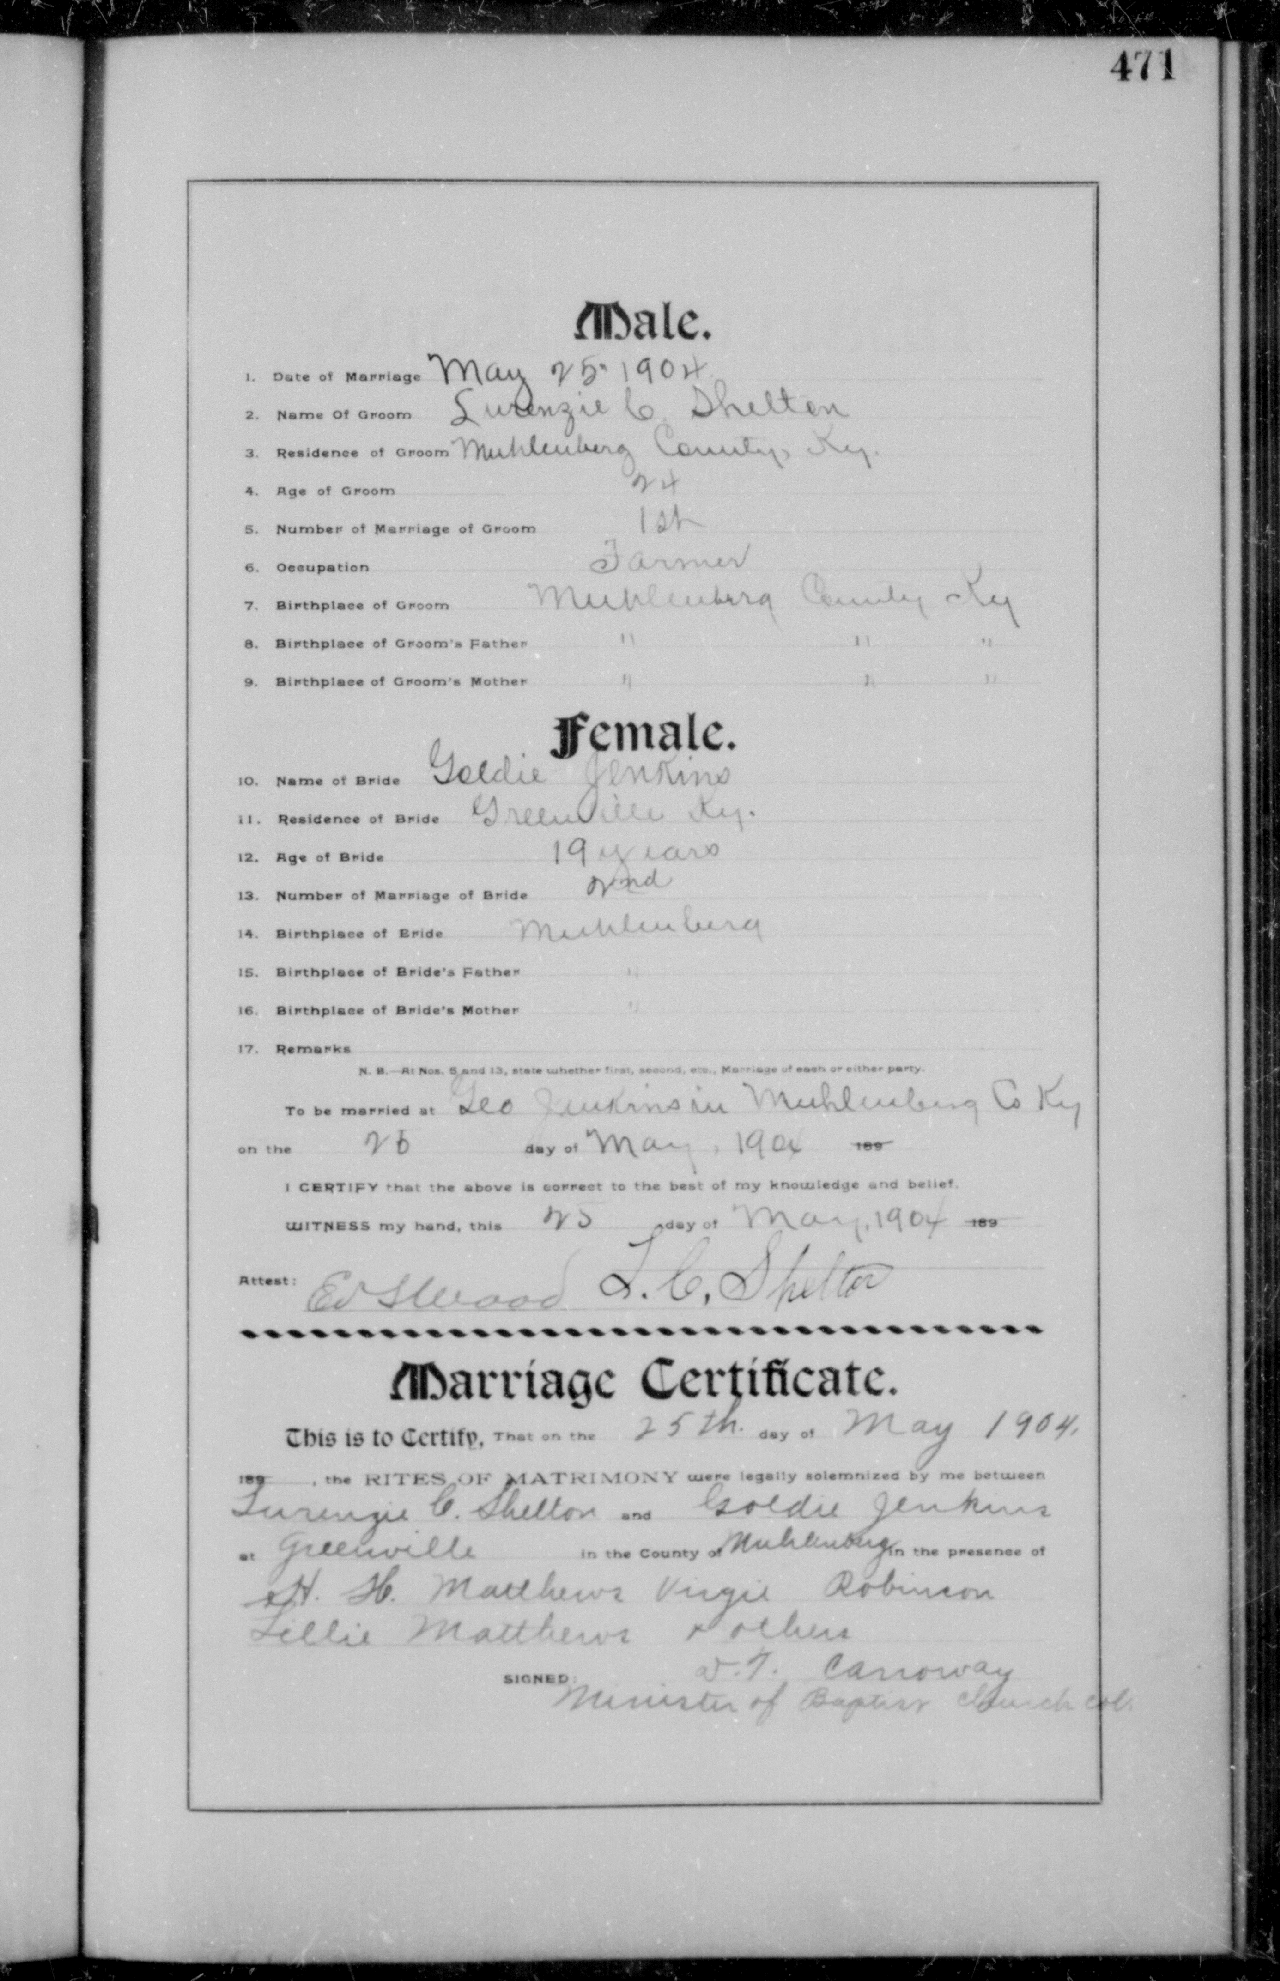 471
Male.
1. Date of Marriage May 25" 1904
2. Name Of Groom Lurenzie C. Shelton
3. Residence of Groom Muhlenberg County, Ky.
4. Age of Groom 24
5. Number of Marriage of Groom 1st
6. Occupation Farmer
7. Birthplace of Groom Muhlenberg County Ky
8. Birthplace of Groom's Father " " "
9. Birthplace of Groom's Mother " " "
Female.
10. Name of Bride Goldie Jenkins
11. Residence of Bride Greenville Ky.
12. Age of Bride 19 years
13. Number of Marriage of Bride 2nd
14. Birthplace of Bride Muhlenberg
15. Birthplace of Bride's Father "
16. Birthplace of Bride's Mother "
17. Remarks
N. B.—At Nos. 5 and 13, state whether first, second, etc., Marriage of each or either party.
To be married at Geo Jenkins in Muhlenberg Co Ky
on the 25 day of May, 1904 189
I CERTIFY that the above is correct to the best of my knowledge and belief.
WITNESS my hand, this 25 day of May, 1904 189
Attest: Ed S Wood L. C. Shelton
Marriage Certificate.
This is to Certify, That on the 25th. day of May 1904.
189 , the RITES OF MATRIMONY were legally solemnized by me between
Lurenzie C. Shelton and Goldie Jenkins
at Greenville in the County of Muhlenberg in the presence of
H. H. Matthews Virgie Robinson
Lillie Matthews & others
SIGNED: Carroway
Minister of Baptist Church col.